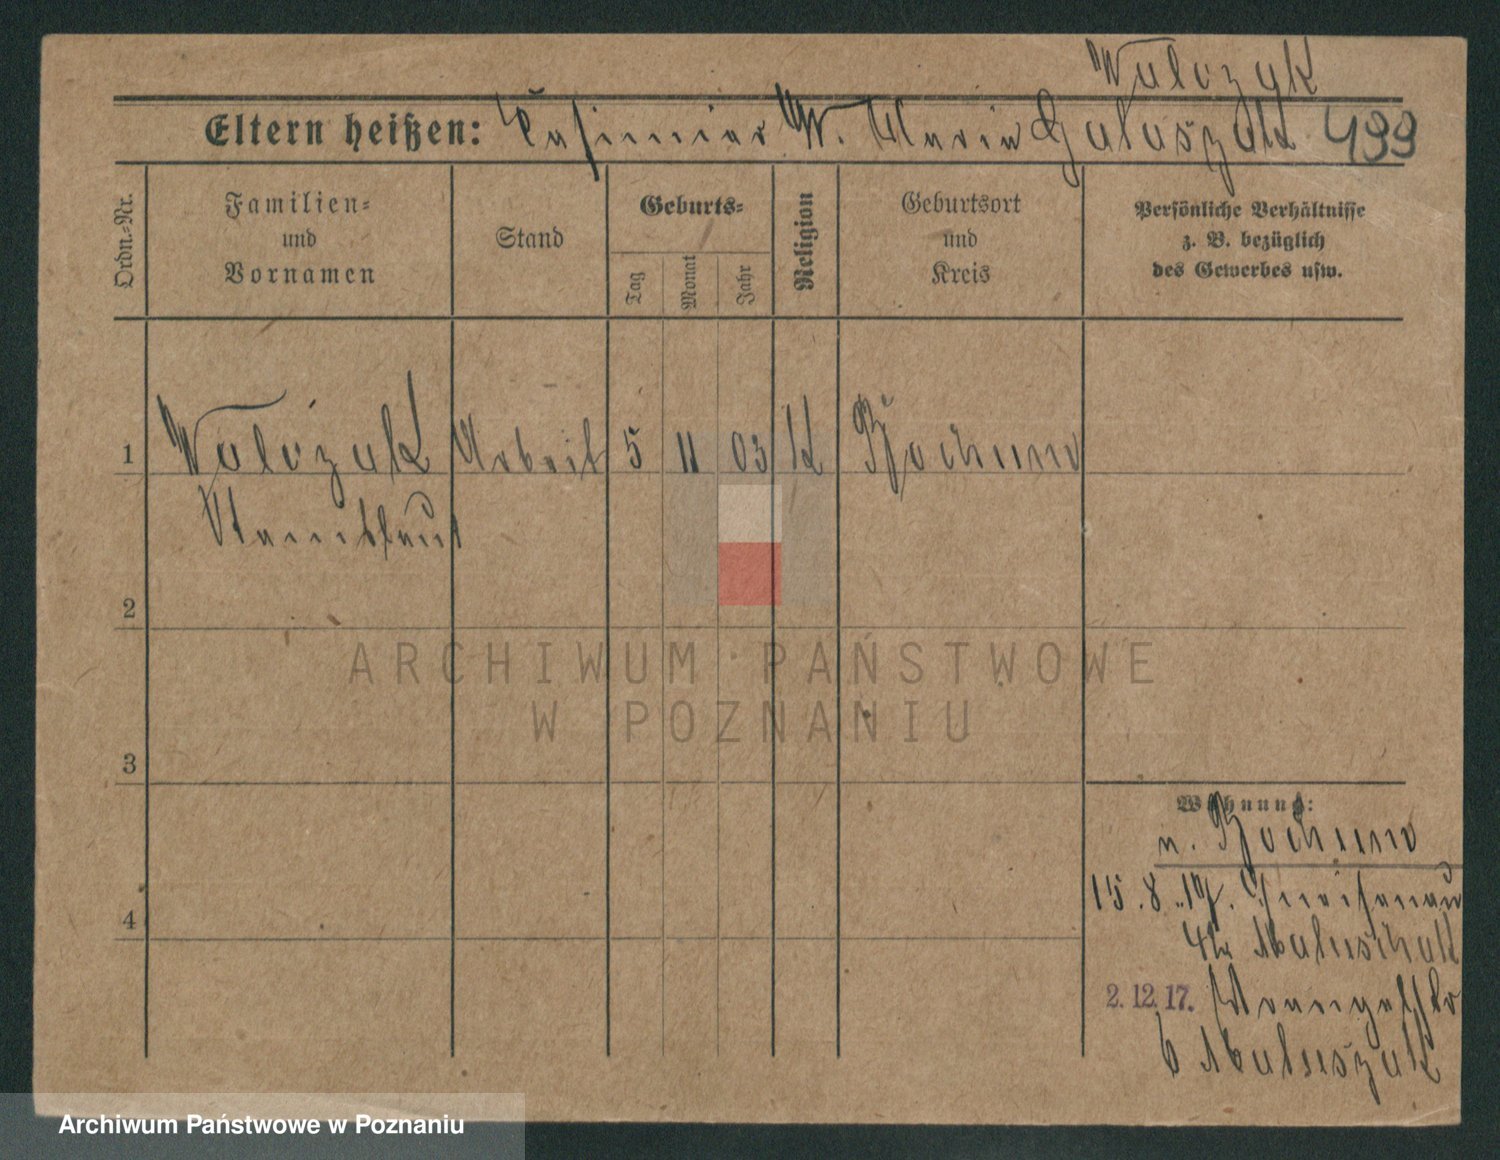 Walczak
Eltern heißen: Kasimir W. Maria Galaszak 499
Ordn.-Nr.
Familien-
und
Vornamen
Stand
Geburts-
Tag
Monat
Jahr
Religion
Geburtsort
und
Kreis
Persönliche Verhältnisse
z. B. bezüglich
des Gewerbes usw.
1 Walczak Arbeit 5 11 03 K Bochum
Stanislaus
2
ARCHIWUM PAŃSTWOWE
W POZNANIU
3
Wohnung:
n. Bochum
15.8.17. Gneisenau
2.12.17.
6 Matuszak
4
Archiwum Państwowe w Poznaniu